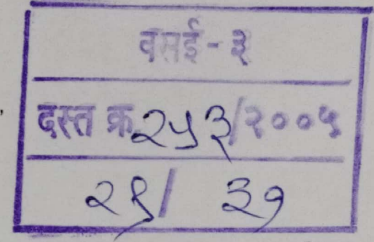 वसई - ३
दस्त क्र. २५३/२००५
२९/ ३१